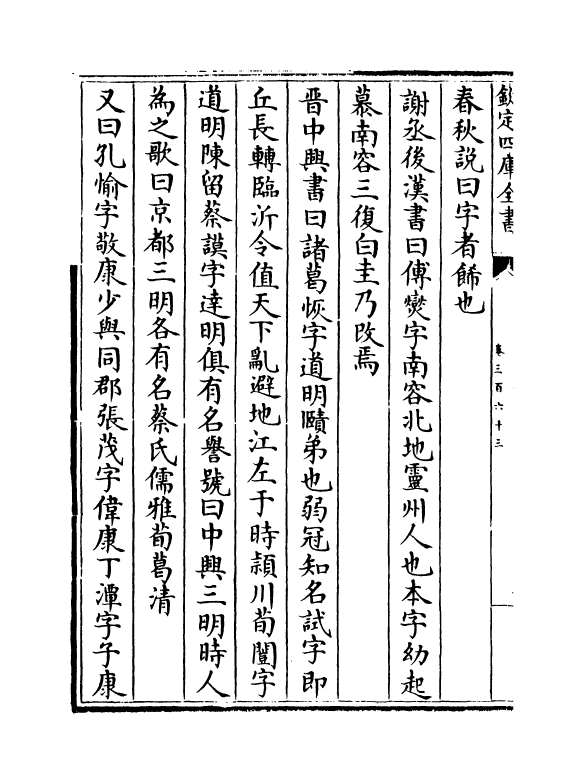 欽定四庫全書
卷三百六十三
春秋説曰字者飾也
謝丞後漢書曰傅燮字南容北地靈州人也本字幼起
慕南容三復白圭乃改焉
晉中興書曰諸葛恢字道明頤弟也弱冠知名試字即
丘長轉臨沂令值天下亂避地江左于時潁川荀闓字
道明陳留蔡謨字達明俱有名譽號曰中興三明時人
為之歌曰京都三明各有名蔡氏儒雅荀葛清
又曰孔愉字敬康少與同郡張茂字偉康丁潭字子康